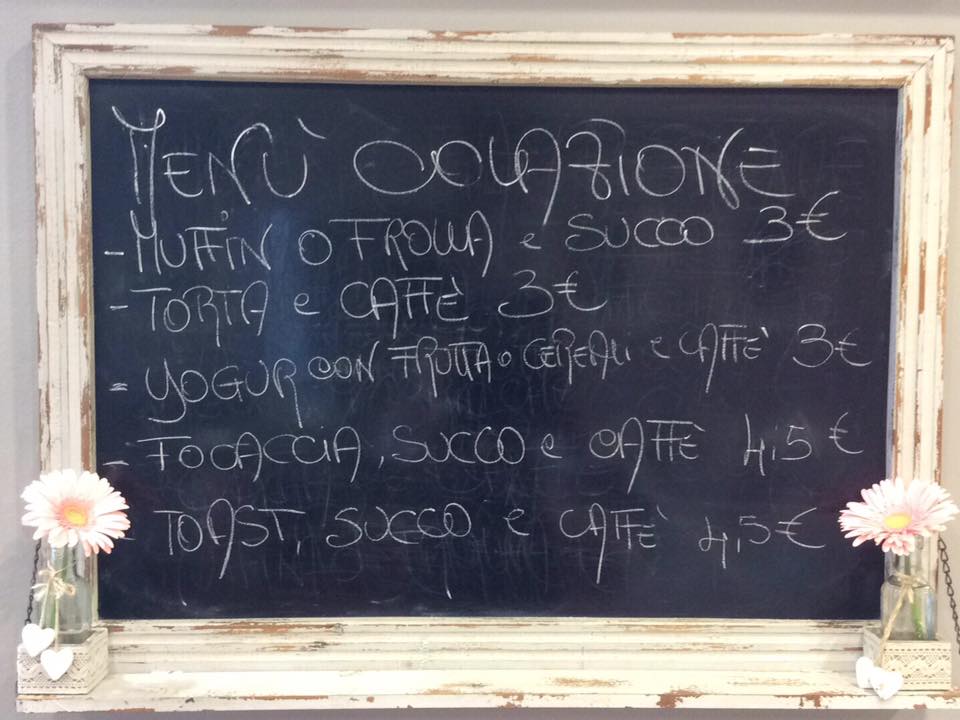 MENÙ COLAZIONE
- MUFFIN O FROLLA e SUCCO 3€
- TORTA e CAFFÈ 3€
= YOGUR CON FRUTTA O CEREALI e CAFFÈ 3€
- FOCACCIA, SUCCO e CAFFÈ 4,5 €
- TOAST, SUCCO e CAFFÈ 4,5€